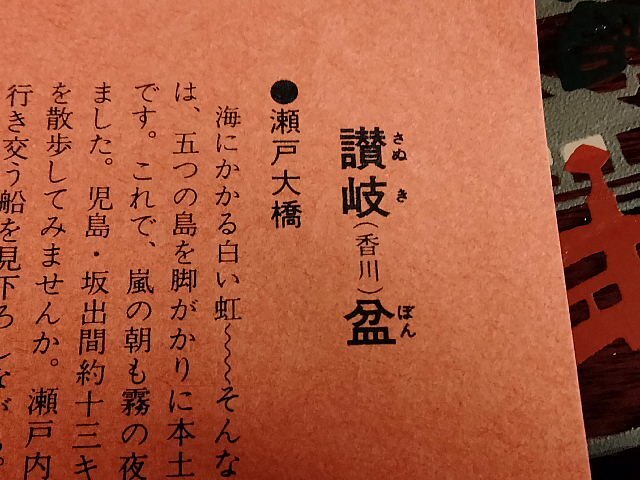 讃岐(香川)盆
さぬき
ぼん
●瀬戸大橋
海にかかる白い虹〜〜〜そんな
は、五つの島を脚がかりに本土
です。これで、嵐の朝も霧の夜
ました。児島・坂出間約十三キ
を散歩してみませんか。瀬戸内
行き交う船を見下ろしながら。